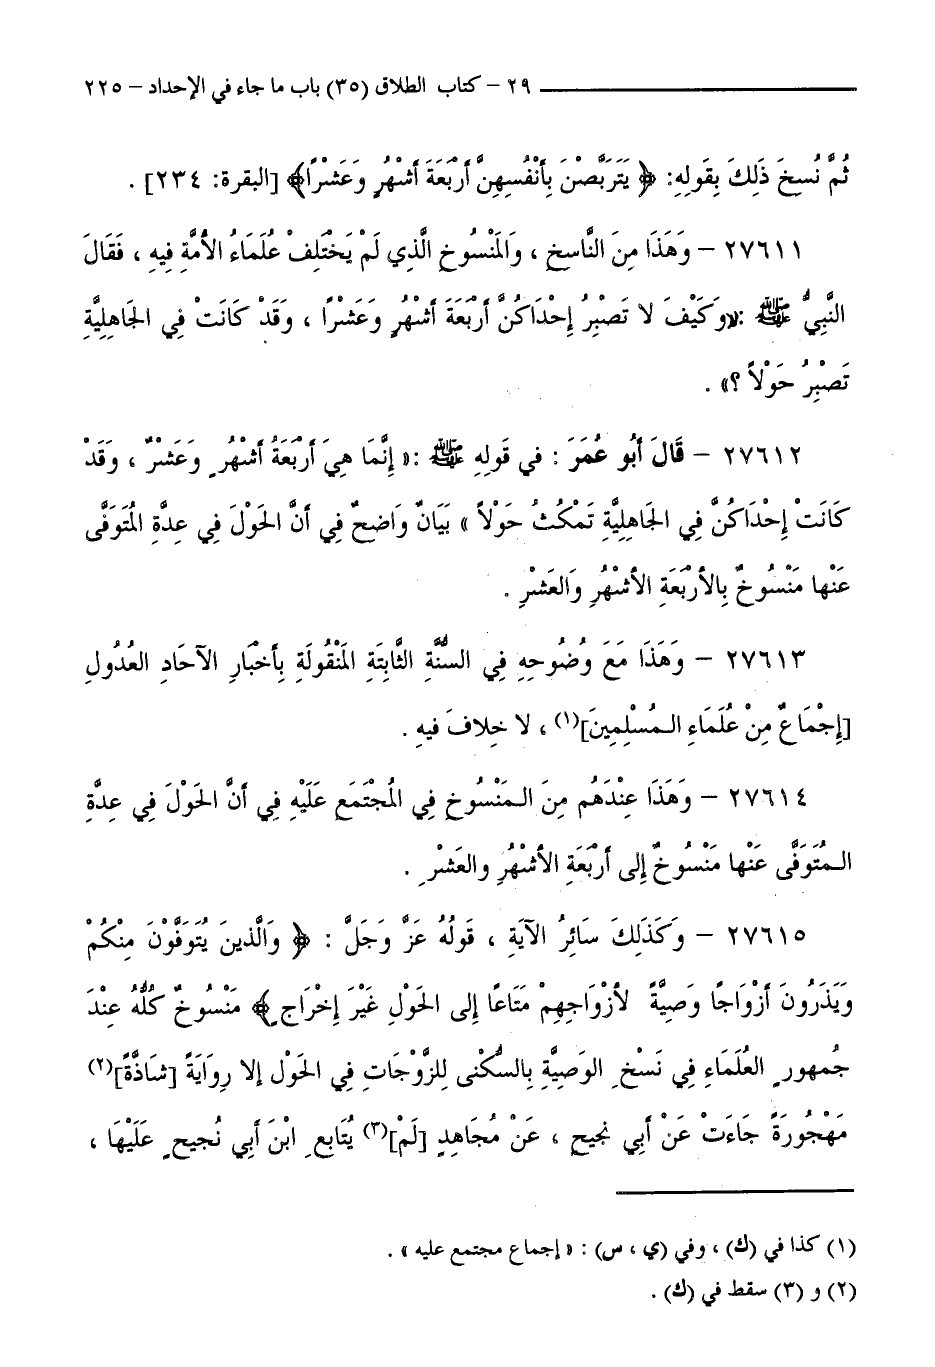 ٢٩ – كتاب الطلاق (٣٥) باب ما جاء في الإحداد – ٢٢٥
ثُمَّ نُسِخَ ذَلِكَ بِقَولِهِ: ﴿ يَتَرَبَّصْنَ بِأَنْفُسِهِنَّ أَرْبَعَةَ أَشْهُرٍ وَعَشْرًا﴾ [البقرة: ٢٣٤] .
٢٧٦١١ – وَهَذَا مِنَ النَّاسِخِ ، وَالمَنْسُوخِ الَّذِي لَمْ يَخْتَلِفْ عُلَمَاءُ الأُمَّةِ فِيهِ ، فَقَالَ
النَّبِيُّ ﷺ :«وَكَيْفَ لا تَصْبِرُ إِحْدَاكُنَّ أَرْبَعَةَ أَشْهُرٍ وَعَشْرًا ، وَقَدْ كَانَتْ فِي الجَاهِلِيَّةِ
تَصْبِرُ حَوْلاً ؟» .
٢٧٦١٢ – قَالَ أَبُو عُمَرَ : في قَولِهِ ﷺ :« إِنَّمَا هِيَ أَرْبَعَةُ أَشْهُرٍ وَعَشْرٌ ، وَقَدْ
كَانَتْ إِحْدَاكُنَّ فِي الجَاهِلِيَّةِ تَمْكُثُ حَوْلاً » بَيَانٌ وَاضِحٌ فِي أَنَّ الحَوْلَ فِي عِدَّةِ المُتَوَفَّى
عَنْها مَنْسُوخٌ بِالأَرْبَعَةِ الأَشْهُرِ وَالعَشْرِ .
٢٧٦١٣ – وَهَذَا مَعَ وُضُوحِهِ فِي السُّنَّةِ الثَّابِتَةِ المَنْقُولَةِ بِأَخْبَارِ الآحَادِ العُدُولِ
[إِجْمَاعٌ مِنْ عُلَمَاءِ المُسْلِمِينَ](١) ، لا خِلافَ فيهِ .
٢٧٦١٤ – وَهَذَا عِنْدَهُم مِنَ المَنْسُوخِ فِي المُجْتَمَعِ عَلَيْهِ فِي أَنَّ الحَوْلَ فِي عِدَّةِ
المُتَوَفَّى عَنْها مَنْسُوخٌ إِلى أَرْبَعَةِ الأَشْهُرِ والعَشْرِ .
٢٧٦١٥ – وَكَذَلِكَ سَائِرُ الآيَةِ ، قَولُهُ عَزَّ وَجَلَّ : ﴿ وَالَّذِينَ يُتَوَفَّوْنَ مِنْكُمْ
وَيَذَرُونَ أَزْوَاجًا وَصِيَّةً لأَزْوَاجِهِمْ مَتَاعًا إِلى الحَوْلِ غَيْرَ إِخْرَاجٍ﴾ مَنْسُوخٌ كُلُّهُ عِنْدَ
جُمهورِ العُلَمَاءِ فِي نَسْخِ الوَصِيَّةِ بِالسُّكْنى لِلزَّوْجَاتِ فِي الحَوْلِ إلا رِوَايَةً [شَاذَّةً](٢)
مَهْجُورَةً جَاءَتْ عَنْ أَبِي نجيحٍ ، عَنْ مُجَاهِدٍ [لَمْ](٣) يُتَابعِ ابْنَ أبي نُجيحٍ عَلَيْهَا ،
(١) كذا في (ك) ، وفي (ي ، س) : « إجماع مجتمع عليه » .
(٢) و (٣) سقط في (ك) .